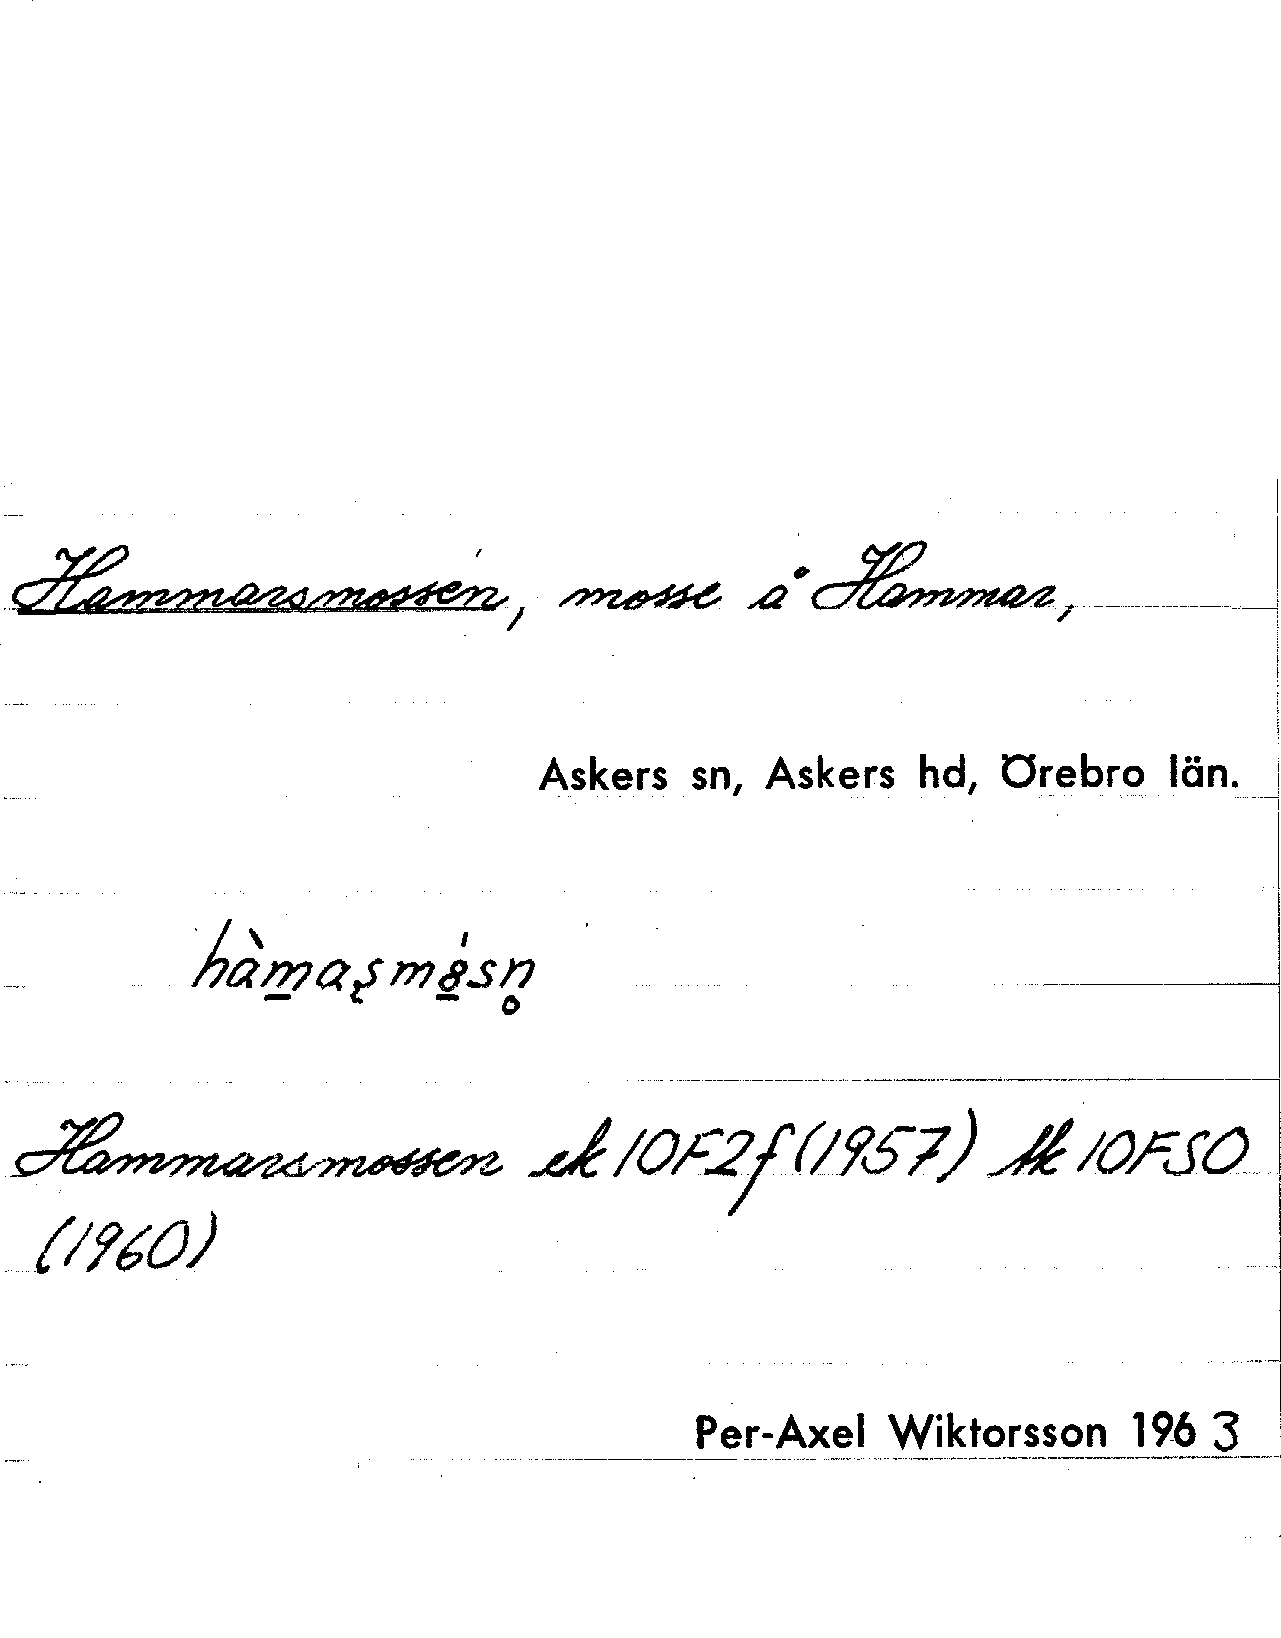 Hammarsmossen, mosse å Hammar,
Askers sn, Askers hd, Örebro län.
hàm̲aʂmȯ̲sn̥
Hammarsmossen ek 10F2f (1957) tk 10FSO
(1960)
Per-Axel Wiktorsson 1963